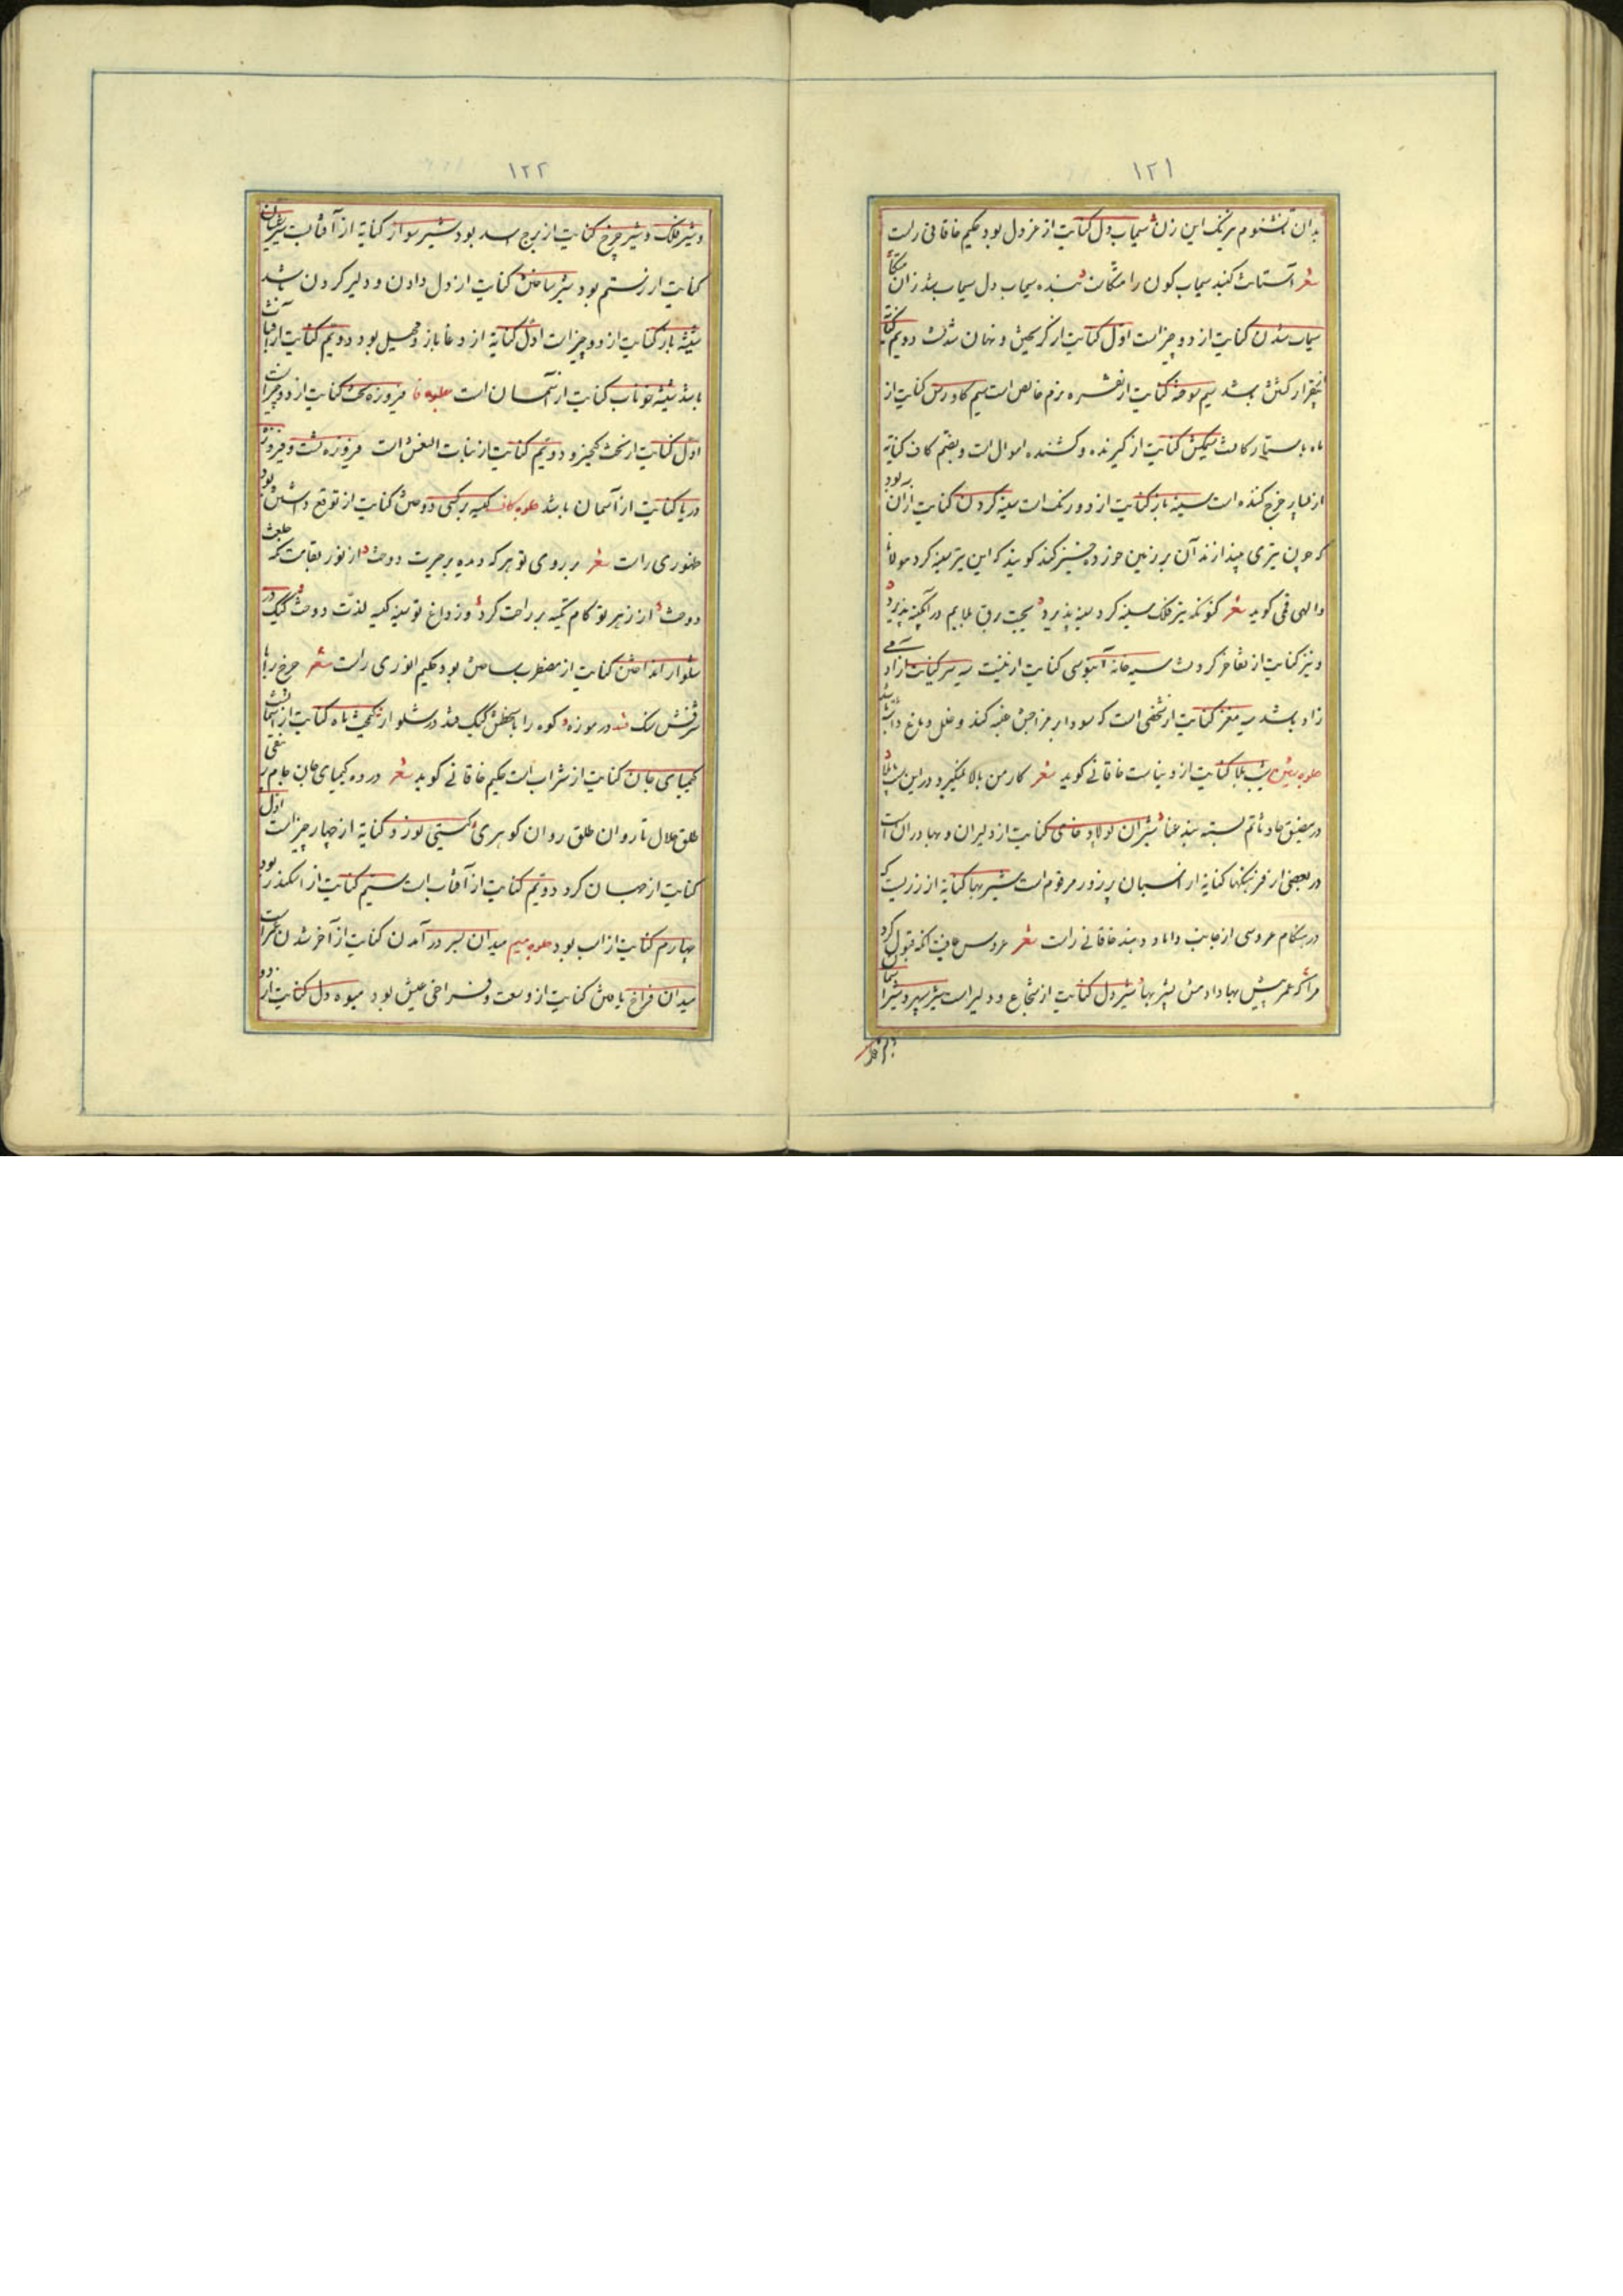 ۱۲۱
بدان نشنوم نرنک این زن سیماب دل کنایت از بزدل بود حکیم خاقانی راست
شعر آستانت کنبد سیماب کون را متکاست بنده سیماب دل سیماب شد زان متکا
سیماب شدن کنایت از دو چیز است اول کنایت از کریختن و نهان شدنست دویم کنایة
بیقرار کشتن باشد سیم سوخته کنایت از نقره خالص است سیم کاورس کنایت از
ماه با ستارکانست کنایت از کیرنده و کشنده اموال است و بضم کاف کنایة
از بسیار خرج کننده است سینه باز کنایت از دو رنک است سینه کردن کنایت از آن بود
که چون تیری بیندازند آن بر زمین خورده خیز کند کویند که این تیر سینه کرد مولانا
والهی قمی کوید شعر کنونکه تیر فلک سینه کرد سینه پذیرد
و نیز کنایت از تفاخر کردنست سیه خانه آبنوسی کنایت از نیست سیه سر کنایت از آدمی
زاد باشد سیه مغز کنایت از شخصی است که سودا بر مزاجش غلبه کند و خلل دماغ داشته باشد
جلوه شین شیب بلا کنایت از دنیاست خاقانی کوید شعر کار من بالا نمیکیرد در این شیب بلا
در مضیق حادثاتم بسته بند عنا شیران پولاد خای کنایت از دلیران و بهادران است
در بعضی از فرهنکها کنایة از اسبان پرزور مرقوم است شیر بها کنایة از زریست که
در هنکام عروسی از جانب داماد دهند خاقانی راست شعر عروس عافیت انکه قبول کرد
مرا که عمر بیش بها دادمش بشیر بها شیر دل کنایت از شجاع و دلیر است شیر سپهر و شیر آسمان
و شیر فلک
۱۲۲
و شیر فلک و شیر چرخ کنایت از برج اسد بود شیر سوار کنایة از آفتابست
کنایت از رستم بود شیر ساختن کنایت از دل دادن و دلیر کردن باشد
شیشه باز کنایت از دو چیز است اول کنایة از دغاباز و محیل بود دویم کنایت از آفتاب
باشد شیشه خوناب کنایت از آسمان است جلوه فا فیروزه تخت کنایت از دو چیز است
اول کنایت از تخت کیخسرو دویم کنایت از بنات النعش است فیروزه تشت و فیروزه
دریا کنایت از آسمان باشد جلوه کاف کیسه بر کسی دوختن کنایت از توقع داشتن بود
ظهوری راست شعر بر روی تو هر که دیده بر حیرت دوخت از نور بقامت که خلعت
دوخت از زهر تو کام تکیه بر راحت کرد وز داغ تو سینه کیسه لذت دوخت کیک در
شلوار انداختن کنایت از مضطرب ساختن بود حکیم انوری راست شعر چرخ را با
شرفش سنک فتد در موزه کوه را با سخطش کیک فتد در شلوار
کیمیای جان کنایت از شراب است حکیم خاقانی کوید شعر در ده کیمیای جان جام
طلق حلال تا روان طلق روان کوهری کیتی نورد کنایة از چهار چیز است اول
کنایت از جهان کرد دویم کنایت از آفتاب است سیم کنایت از اسکندر بود
چهارم کنایت از اسب بود جلوه میم میدان بسر در آمدن کنایت از آخر شدن عمر است
میدان فراخ یافتن کنایت از وسعت و فراخی عیش بود میوه دل کنایت از دو